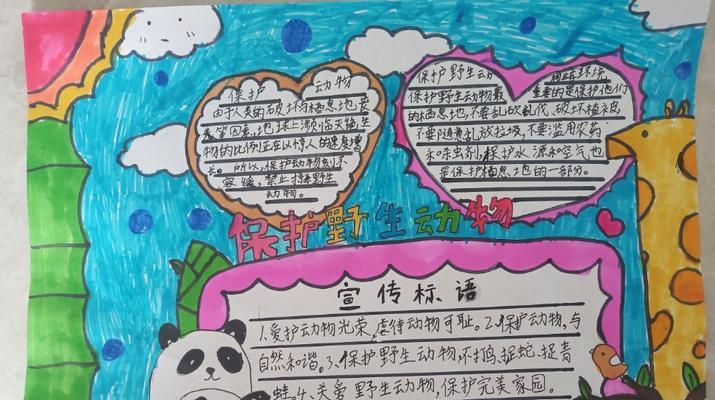 保护 动物
由于人类的破坏与栖息地丧
失等因素,地球上濒临灭绝生
物的比例正在以惊人的速度增
长。所以,保护动物刻不
容缓,禁止捕杀野生
动物。
保护野生动 物环境
保护野生动物最重要的是保护他们
的栖息地,不要乱砍乱伐、破坏植被
不要随意乱放垃圾,不要滥用农药
和杀虫剂,保护水源和空气也
是保护栖息地的一部分。
保护野生动物
宣传标语
1.爱护动物光荣,虐待动物可耻。2.保护动物,与
自然和谐。3.保护野生动物,不打鸟、捉蛇、捉青
蛙。4.关爱野生动物,保护完美家园。